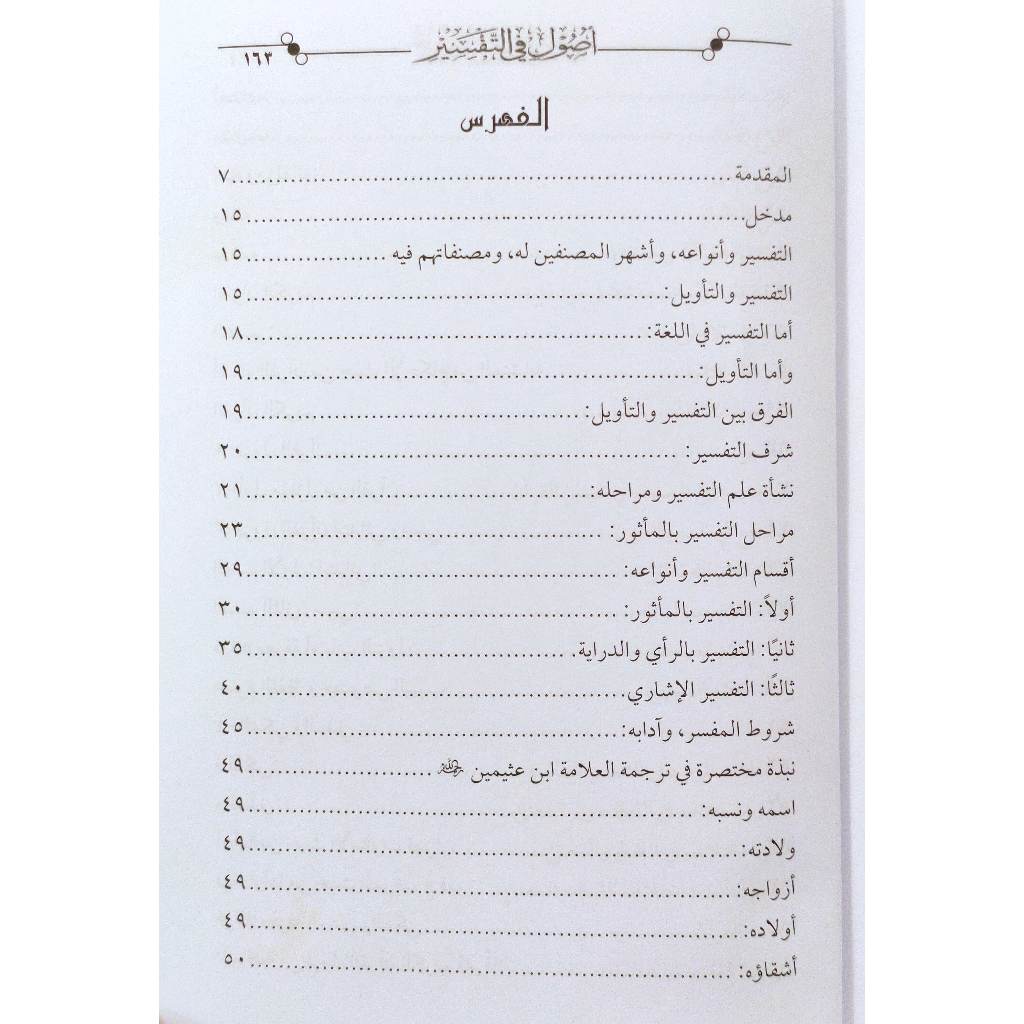 أصول في التفسير
١٦٣
الفهرس
المقدمة ........ ٧
مدخل ........ ١٥
التفسير وأنواعه، وأشهر المصنفين له، ومصنفاتهم فيه ........ ١٥
التفسير والتأويل: ........ ١٥
أما التفسير في اللغة: ........ ١٨
وأما التأويل: ........ ١٩
الفرق بين التفسير والتأويل: ........ ١٩
شرف التفسير: ........ ٢٠
نشأة علم التفسير ومراحله: ........ ٢١
مراحل التفسير بالمأثور: ........ ٢٣
أقسام التفسير وأنواعه: ........ ٢٩
أولاً: التفسير بالمأثور: ........ ٣٠
ثانيًا: التفسير بالرأي والدراية. ........ ٣٥
ثالثًا: التفسير الإشاري. ........ ٤٠
شروط المفسر، وآدابه: ........ ٤٥
نبذة مختصرة في ترجمة العلامة ابن عثيمين رحمه الله ........ ٤٩
اسمه ونسبه: ........ ٤٩
ولادته: ........ ٤٩
أزواجه: ........ ٤٩
أولاده: ........ ٤٩
أشقاؤه: ........ ٥٠